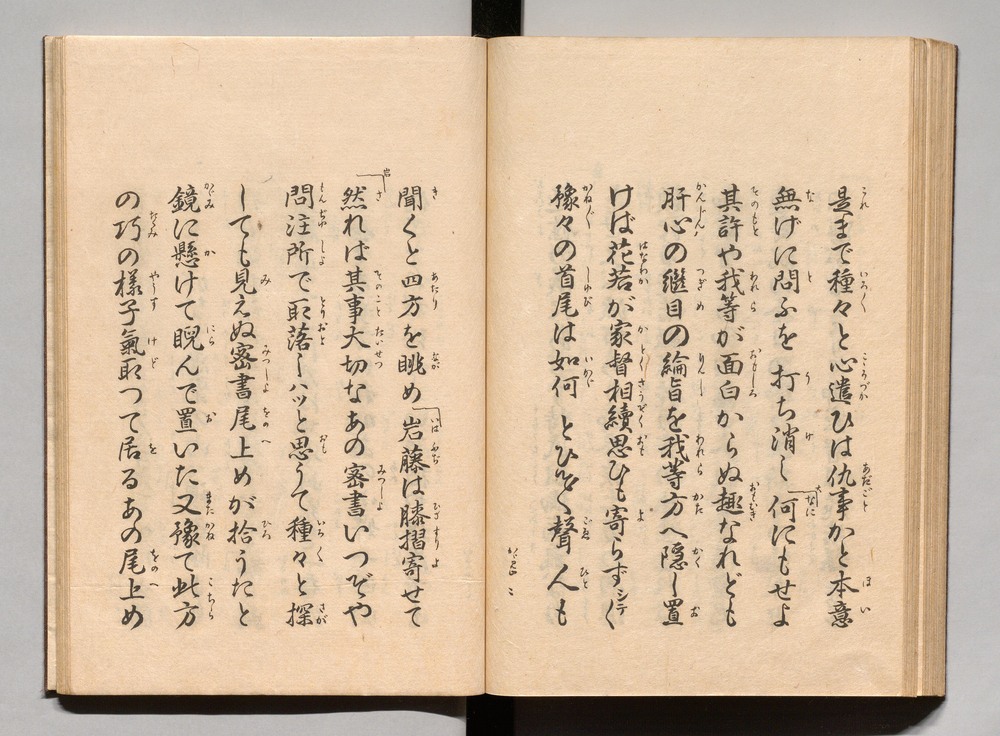 是まで種々と心遣ひは仇事かと本意
無げに問ふを打ち消し何にもせよ
其許や我等が面白からぬ趣なれども
肝心の繼目の綸旨を我等方へ隠し置
けば花若が家督相續思ひも寄らずシテ
豫々の首尾は如何とひそ〱聲人も
聞くと四方を眺め岩藤は膝摺寄せて
然れば其事大切なあの密書いつぞや
問注所で取落しハッと思うて種々と探
しても見えぬ密書尾上めが拾うたと
鏡に懸けて睨んで置いた又豫て此方
の巧の樣子氣取つて居るあの尾上め